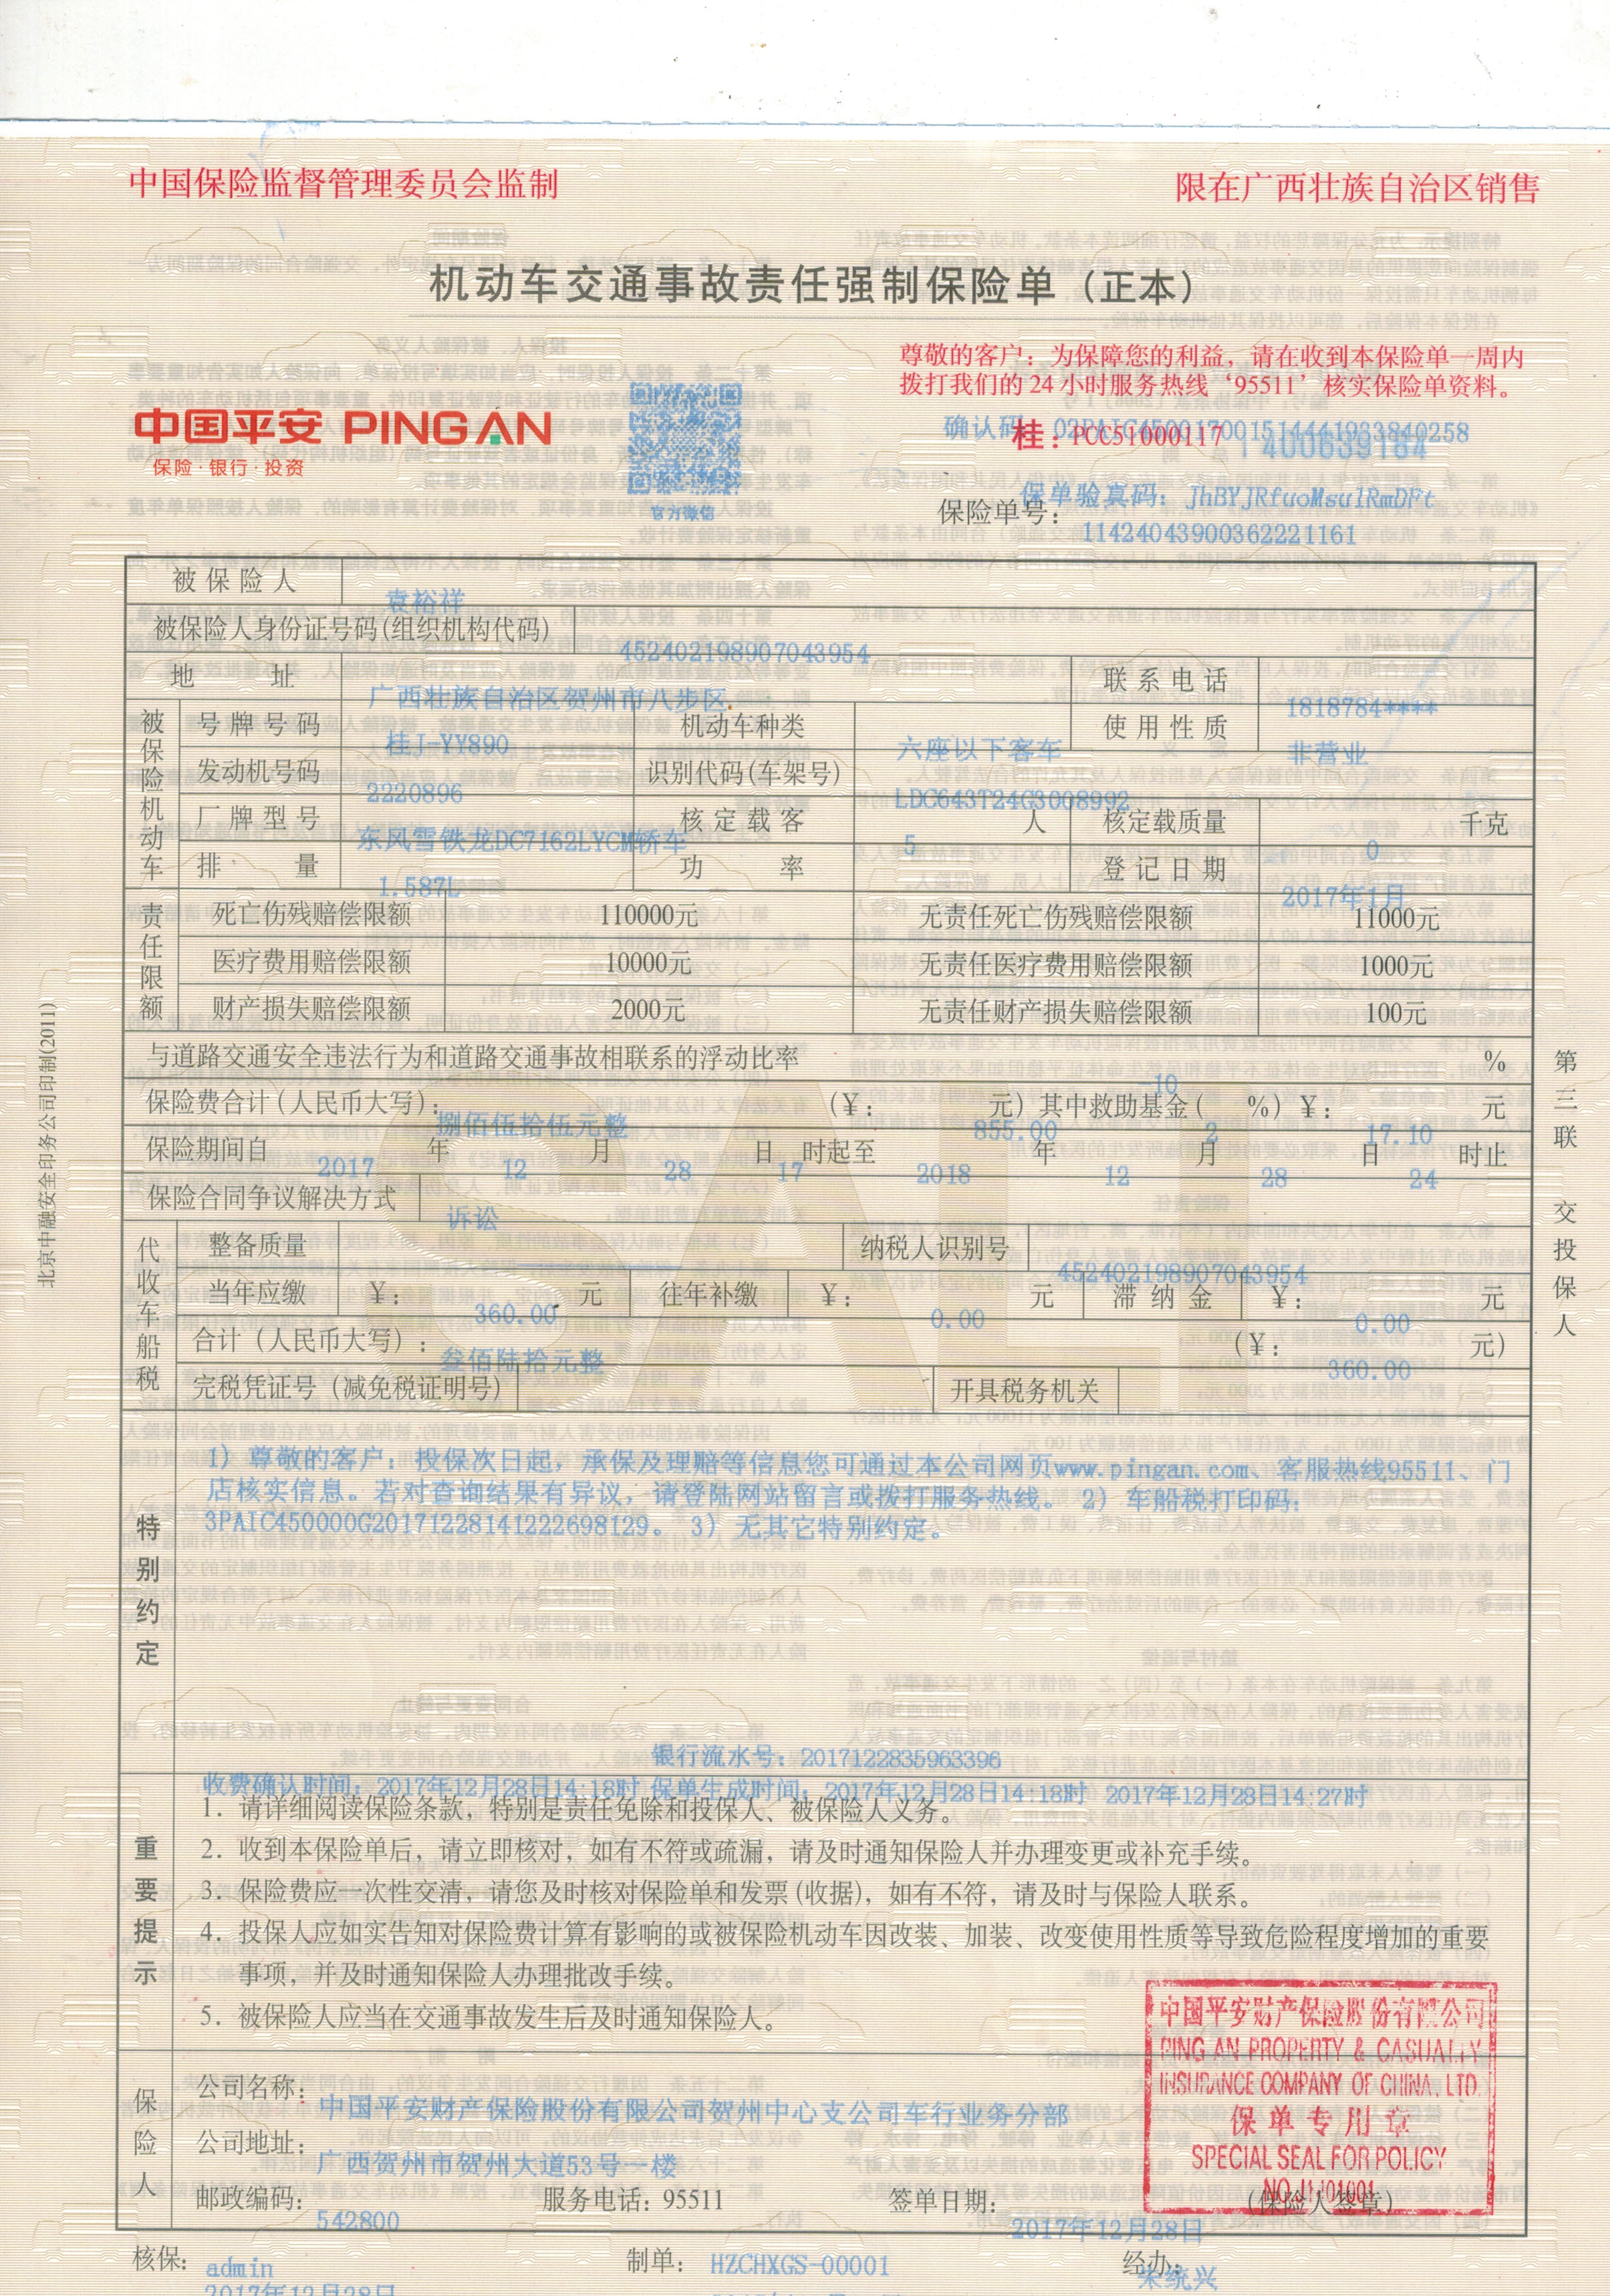 中国保险监督管理委员会监制
限在广西壮族自治区销售
机动车交通事故责任强制保险单（正本）
尊敬的客户：为保障您的利益，请在收到本保险单一周内
拨打我们的 24 小时服务热线‘95511’核实保险单资料。
中国平安 PING AN
保险·银行·投资
官方微信
确认码：02PAIC450017001514441933840258
桂：PCC51000117 1400639184
保单验真码：JhBYJRfuoMsu1RmDFt
保险单号：11424043900362221161
被保险人 袁裕祥
被保险人身份证号码(组织机构代码) 452402198907043954
地址 广西壮族自治区贺州市八步区. 联系电话 1818784****
被保险机动车
号牌号码 桂J-YY890 机动车种类 六座以下客车 使用性质 非营业
发动机号码 2220896 识别代码(车架号) LDC643T24G3008992
厂牌型号 东风雪铁龙DC7162LYCM轿车 核定载客 5 人 核定载质量 0 千克
排量 1.587L 功率 登记日期 2017年1月
责任限额
死亡伤残赔偿限额 110000元 无责任死亡伤残赔偿限额 11000元
医疗费用赔偿限额 10000元 无责任医疗费用赔偿限额 1000元
财产损失赔偿限额 2000元 无责任财产损失赔偿限额 100元
与道路交通安全违法行为和道路交通事故相联系的浮动比率 -10 %
保险费合计(人民币大写)：捌佰伍拾伍元整 (¥：855.00 元) 其中救助基金( 2 %) ¥：17.10 元
保险期间自 2017 年 12 月 28 日 17 时起至 2018 年 12 月 28 日 24 时止
保险合同争议解决方式 诉讼
代收车船税
整备质量 纳税人识别号 452402198907043954
当年应缴 ¥：360.00 元 往年补缴 ¥：0.00 元 滞纳金 ¥：0.00 元
合计（人民币大写）：叁佰陆拾元整 (¥：360.00 元)
完税凭证号（减免税证明号） 开具税务机关
特别约定
1）尊敬的客户：投保次日起，承保及理赔等信息您可通过本公司网页www.pingan.com、客服热线95511、门
店核实信息。若对查询结果有异议，请登陆网站留言或拨打服务热线。 2）车船税打印码：
3PAIC450000G201712281412226981​29。 3）无其它特别约定。
银行流水号：2017122835963396
收费确认时间：2017年12月28日14:18时 保单生成时间：2017年12月28日14:18时 2017年12月28日14:27时
重要提示
1. 请详细阅读保险条款，特别是责任免除和投保人、被保险人义务。
2. 收到本保险单后，请立即核对，如有不符或疏漏，请及时通知保险人并办理变更或补充手续。
3. 保险费应一次性交清，请您及时核对保险单和发票(收据)，如有不符，请及时与保险人联系。
4. 投保人应如实告知对保险费计算有影响的或被保险机动车因改装、加装、改变使用性质等导致危险程度增加的重要
事项，并及时通知保险人办理批改手续。
5. 被保险人应当在交通事故发生后及时通知保险人。
保险人
公司名称：中国平安财产保险股份有限公司贺州中心支公司车行业务分部
公司地址：广西贺州市贺州大道53号一楼
邮政编码：542800 服务电话：95511 签单日期：2017年12月28日 (保险人签章)
中国平安财产保险股份有限公司
PING AN PROPERTY & CASUALTY
INSURANCE COMPANY OF CHINA, LTD.
保单专用章
SPECIAL SEAL FOR POLICY
NO.J1101001
核保：admin 制单：HZCHXGS-00001 经办：宋统兴
2017年12月28日
第三联 交投保人
北京中融安全印务公司印制(2011)
SALI